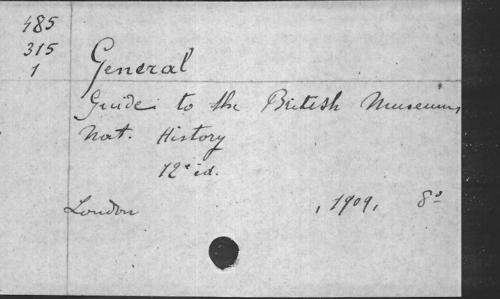 485
315
1
General
Guide to the British Museum,
Nat. History
12e ed.
London , 1909, 8°